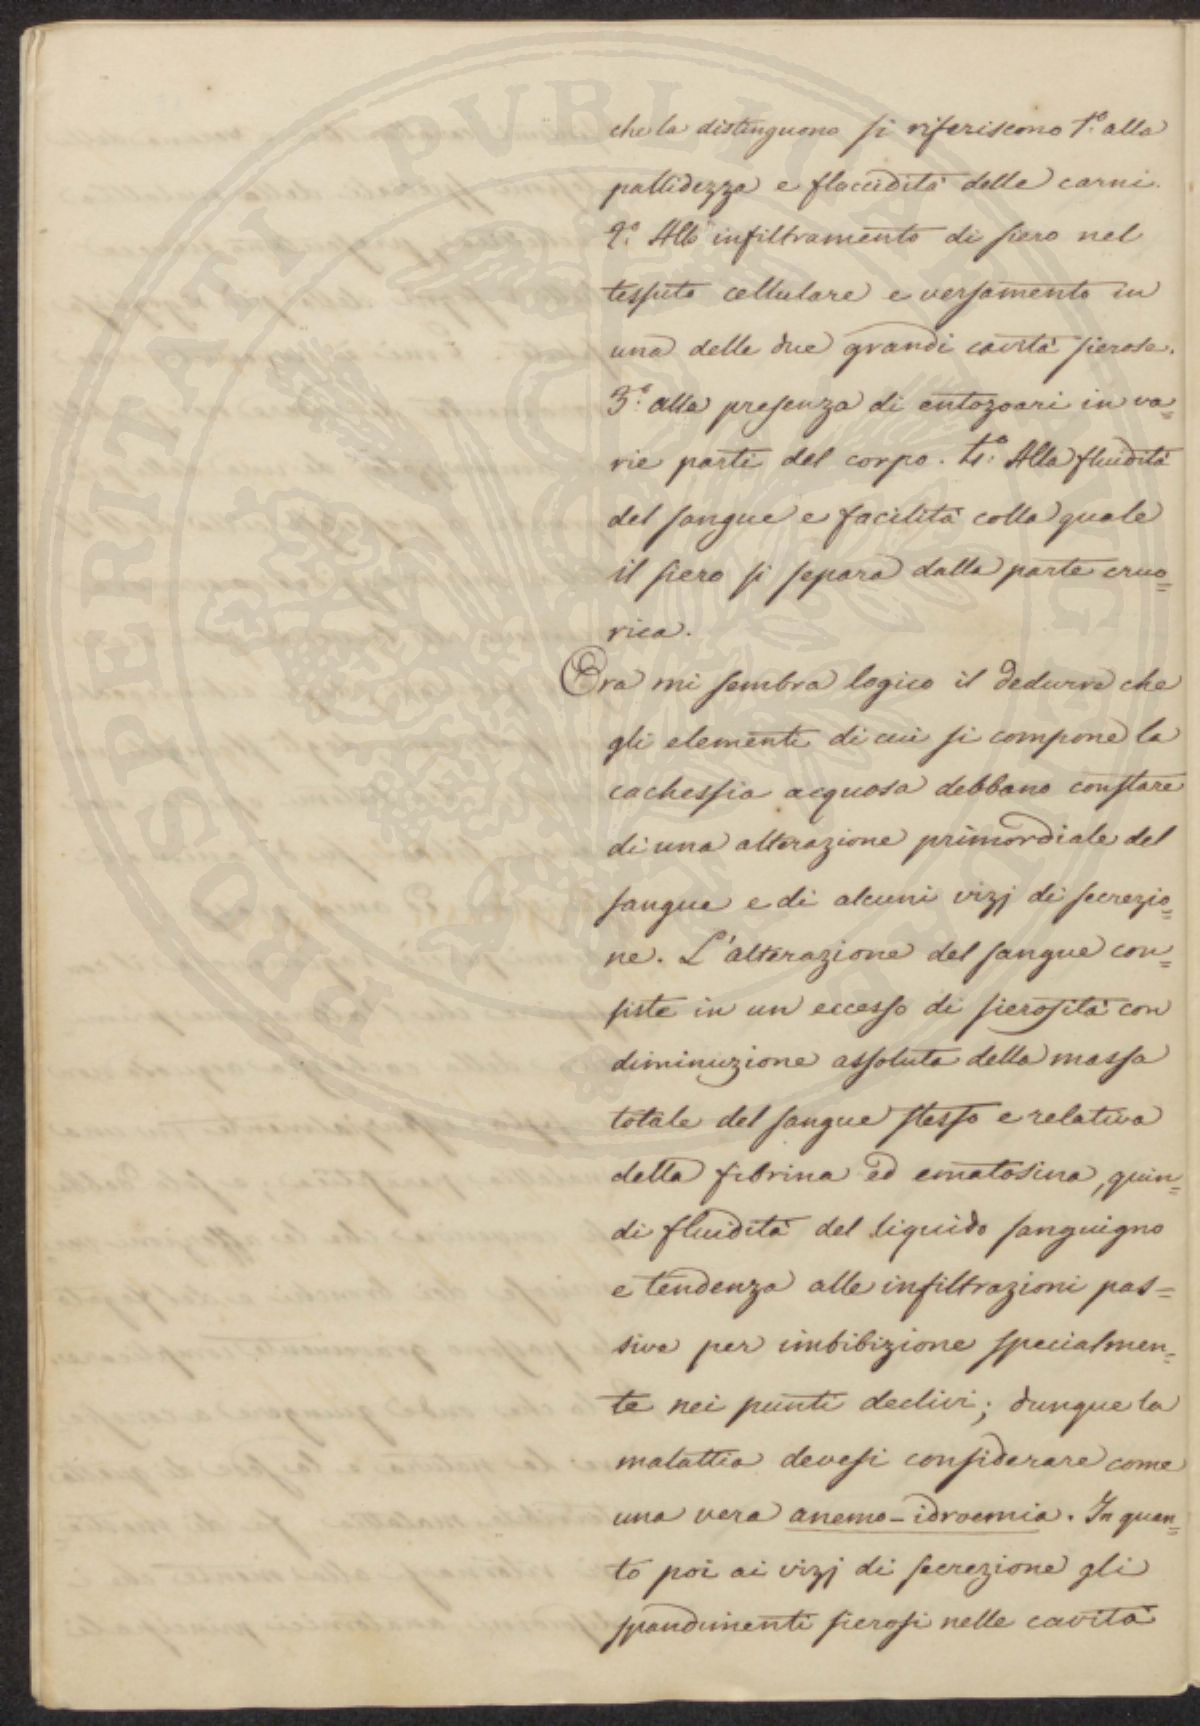 che la distinguono si riferiscono 1.º alla
pallidezza e flaccidità delle carni.
2.º All' infiltramento di siero nel
tessuto cellulare e versamento in
una delle due grandi cavità sierose.
3.º alla presenza di entozoari in va=
rie parti del corpo. 4.º Alla fluidità
del sangue e facilità colla quale
il siero si separa dalla parte cruo=
rica.
Ora mi sembra logico il dedurre che
gli elementi di cui si compone la
cachessia acquosa debbano constare
di una alterazione primordiale del
sangue e di alcuni vizj di secrezio=
ne. L'alterazione del sangue con=
siste in un eccesso di sierosità con
diminuzione assoluta della massa
totale del sangue stesso e relativa
della fibrina ed ematosina, quin=
di fluidità del liquido sanguigno
e tendenza alle infiltrazioni pas=
sive per imbibizione specialmen=
te nei punti declivi; dunque la
malattia devesi considerare come
una vera anemo-idroemia. In quan=
to poi ai vizj di secrezione gli
spandimenti sierosi nelle cavità
PROSPERITATI PUBLICAE